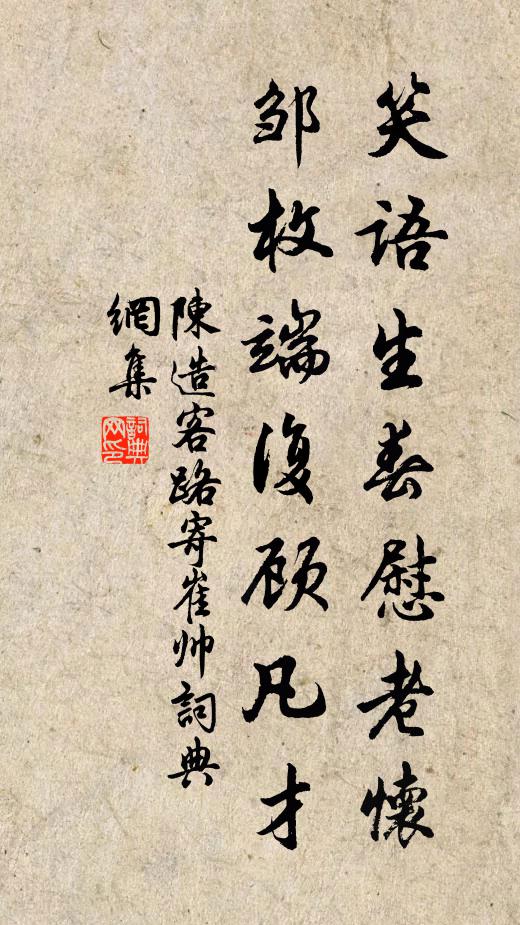 笑语生春慰老懷
邹枚端復顾凡才
陳造客路寄崔帅詞典
網集
詞典
网印